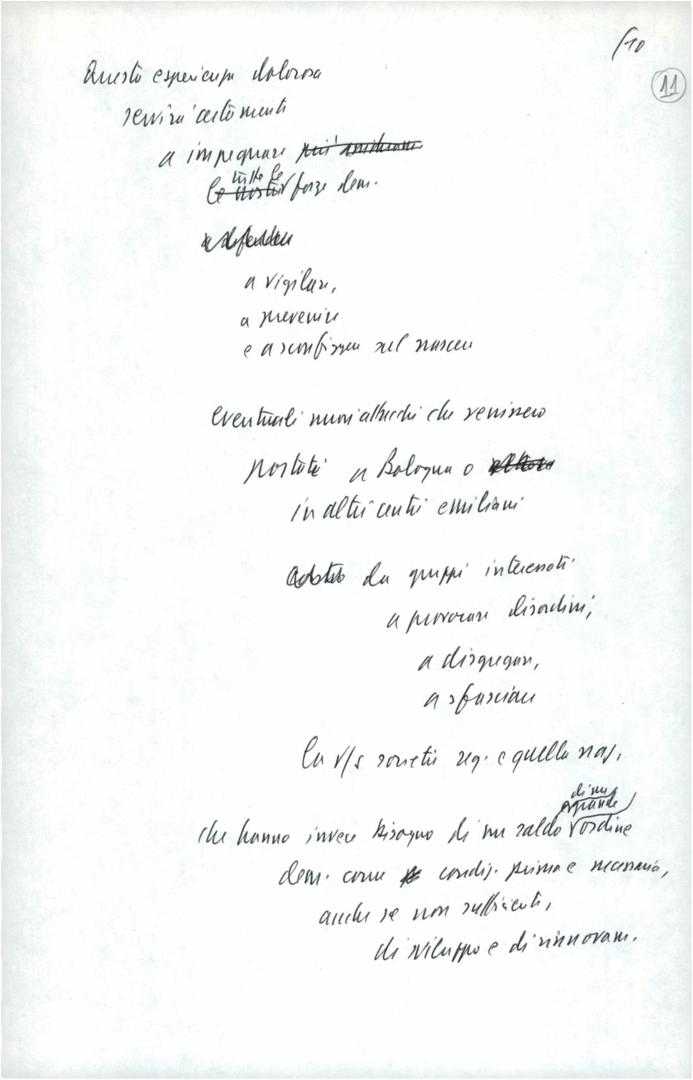 /10
11
Questa esperienza dolorosa
servirà certamente
a impegnare più
tutte le
le nostre forze dem.
a difendere
a vigilare,
a prevenire
e a sconfiggere sul nascere
eventuali nuovi attacchi che venissero
portati a Bologna o
in altri centri emiliani
da gruppi interessati
a provocare disordini,
a disgregare,
a sfasciare
la v/s società reg. e quella naz.
di un
grande
che hanno invece bisogno di un saldo ordine
dem. come condiz. prima e necessaria,
anche se non sufficiente,
di sviluppo e di rinnovam.